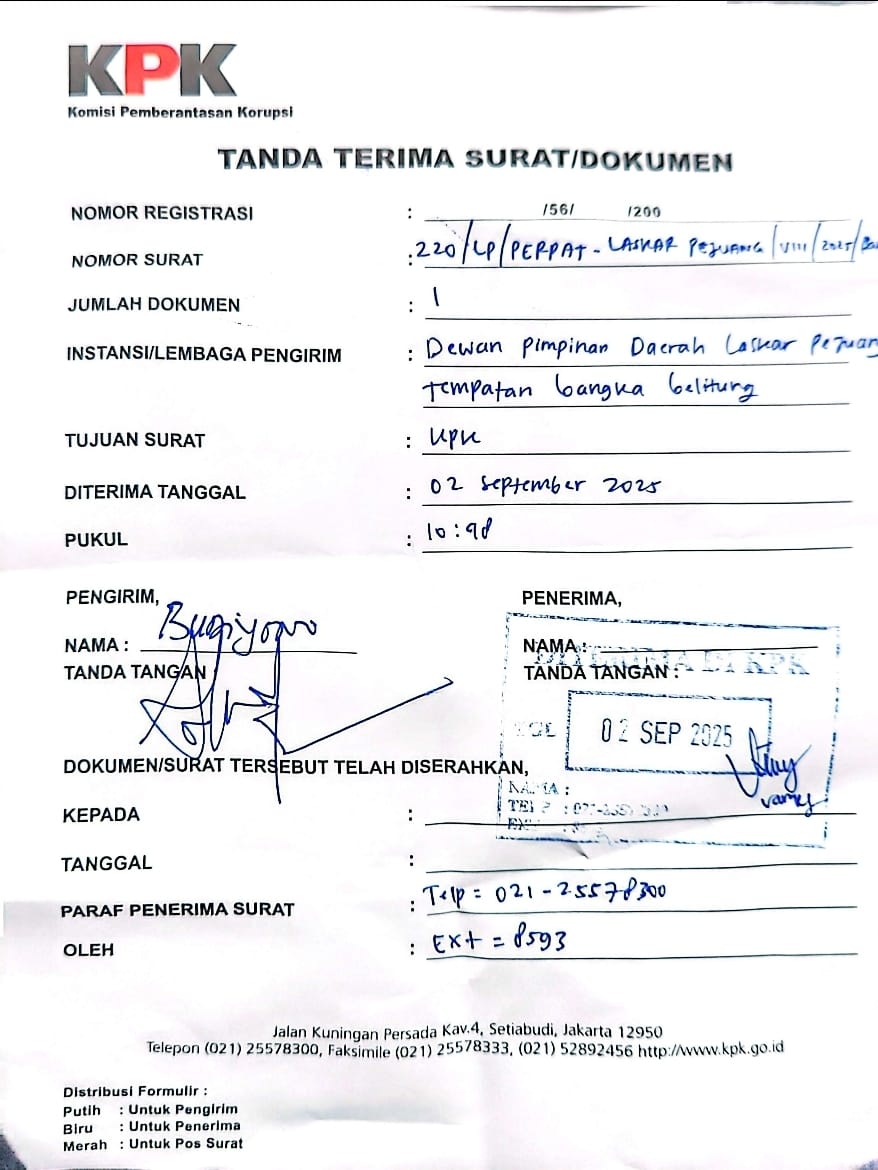 KPK
Komisi Pemberantasan Korupsi
TANDA TERIMA SURAT/DOKUMEN
NOMOR REGISTRASI : /56/ /200
NOMOR SURAT : 220/LP/PERPAT-LASKAR PEJUANG/VIII/2025/
JUMLAH DOKUMEN : 1
INSTANSI/LEMBAGA PENGIRIM : Dewan Pimpinan Daerah Laskar Pejuang
tempatan bangka belitung
TUJUAN SURAT : KPK
DITERIMA TANGGAL : 02 September 2025
PUKUL : 10:
PENGIRIM, PENERIMA,
NAMA : NAMA :
TANDA TANGAN TANDA TANGAN :
DITERIMA DI KPK
TGL 02 SEP 2025
DOKUMEN/SURAT TERSEBUT TELAH DISERAHKAN,
NAMA :
TELP :
KEPADA :
TANGGAL :
PARAF PENERIMA SURAT : Telp = 021-25578300
OLEH : Ext = 8593
Jalan Kuningan Persada Kav.4, Setiabudi, Jakarta 12950
Telepon (021) 25578300, Faksimile (021) 25578333, (021) 52892456 http://www.kpk.go.id
Distribusi Formulir :
Putih : Untuk Pengirim
Biru : Untuk Penerima
Merah : Untuk Pos Surat